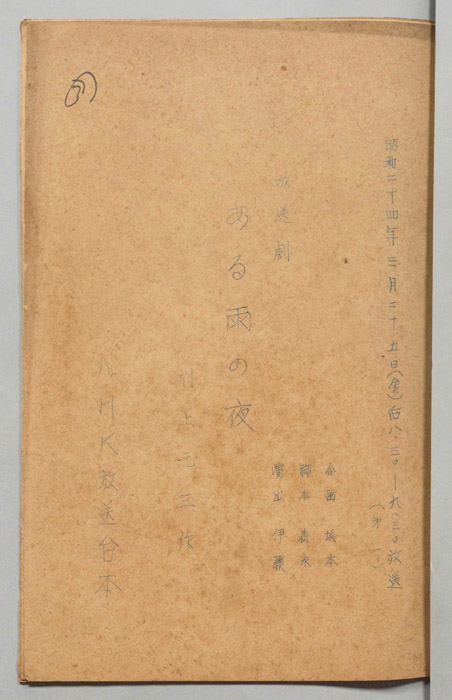 昭和二十四年三月二十五日(金)后八、三〇―九、三〇放送
(第一)
企画 坂本
脚本 森永
演出 伊藤
放送劇
ある雨の夜
川上元三作
NHK放送台本